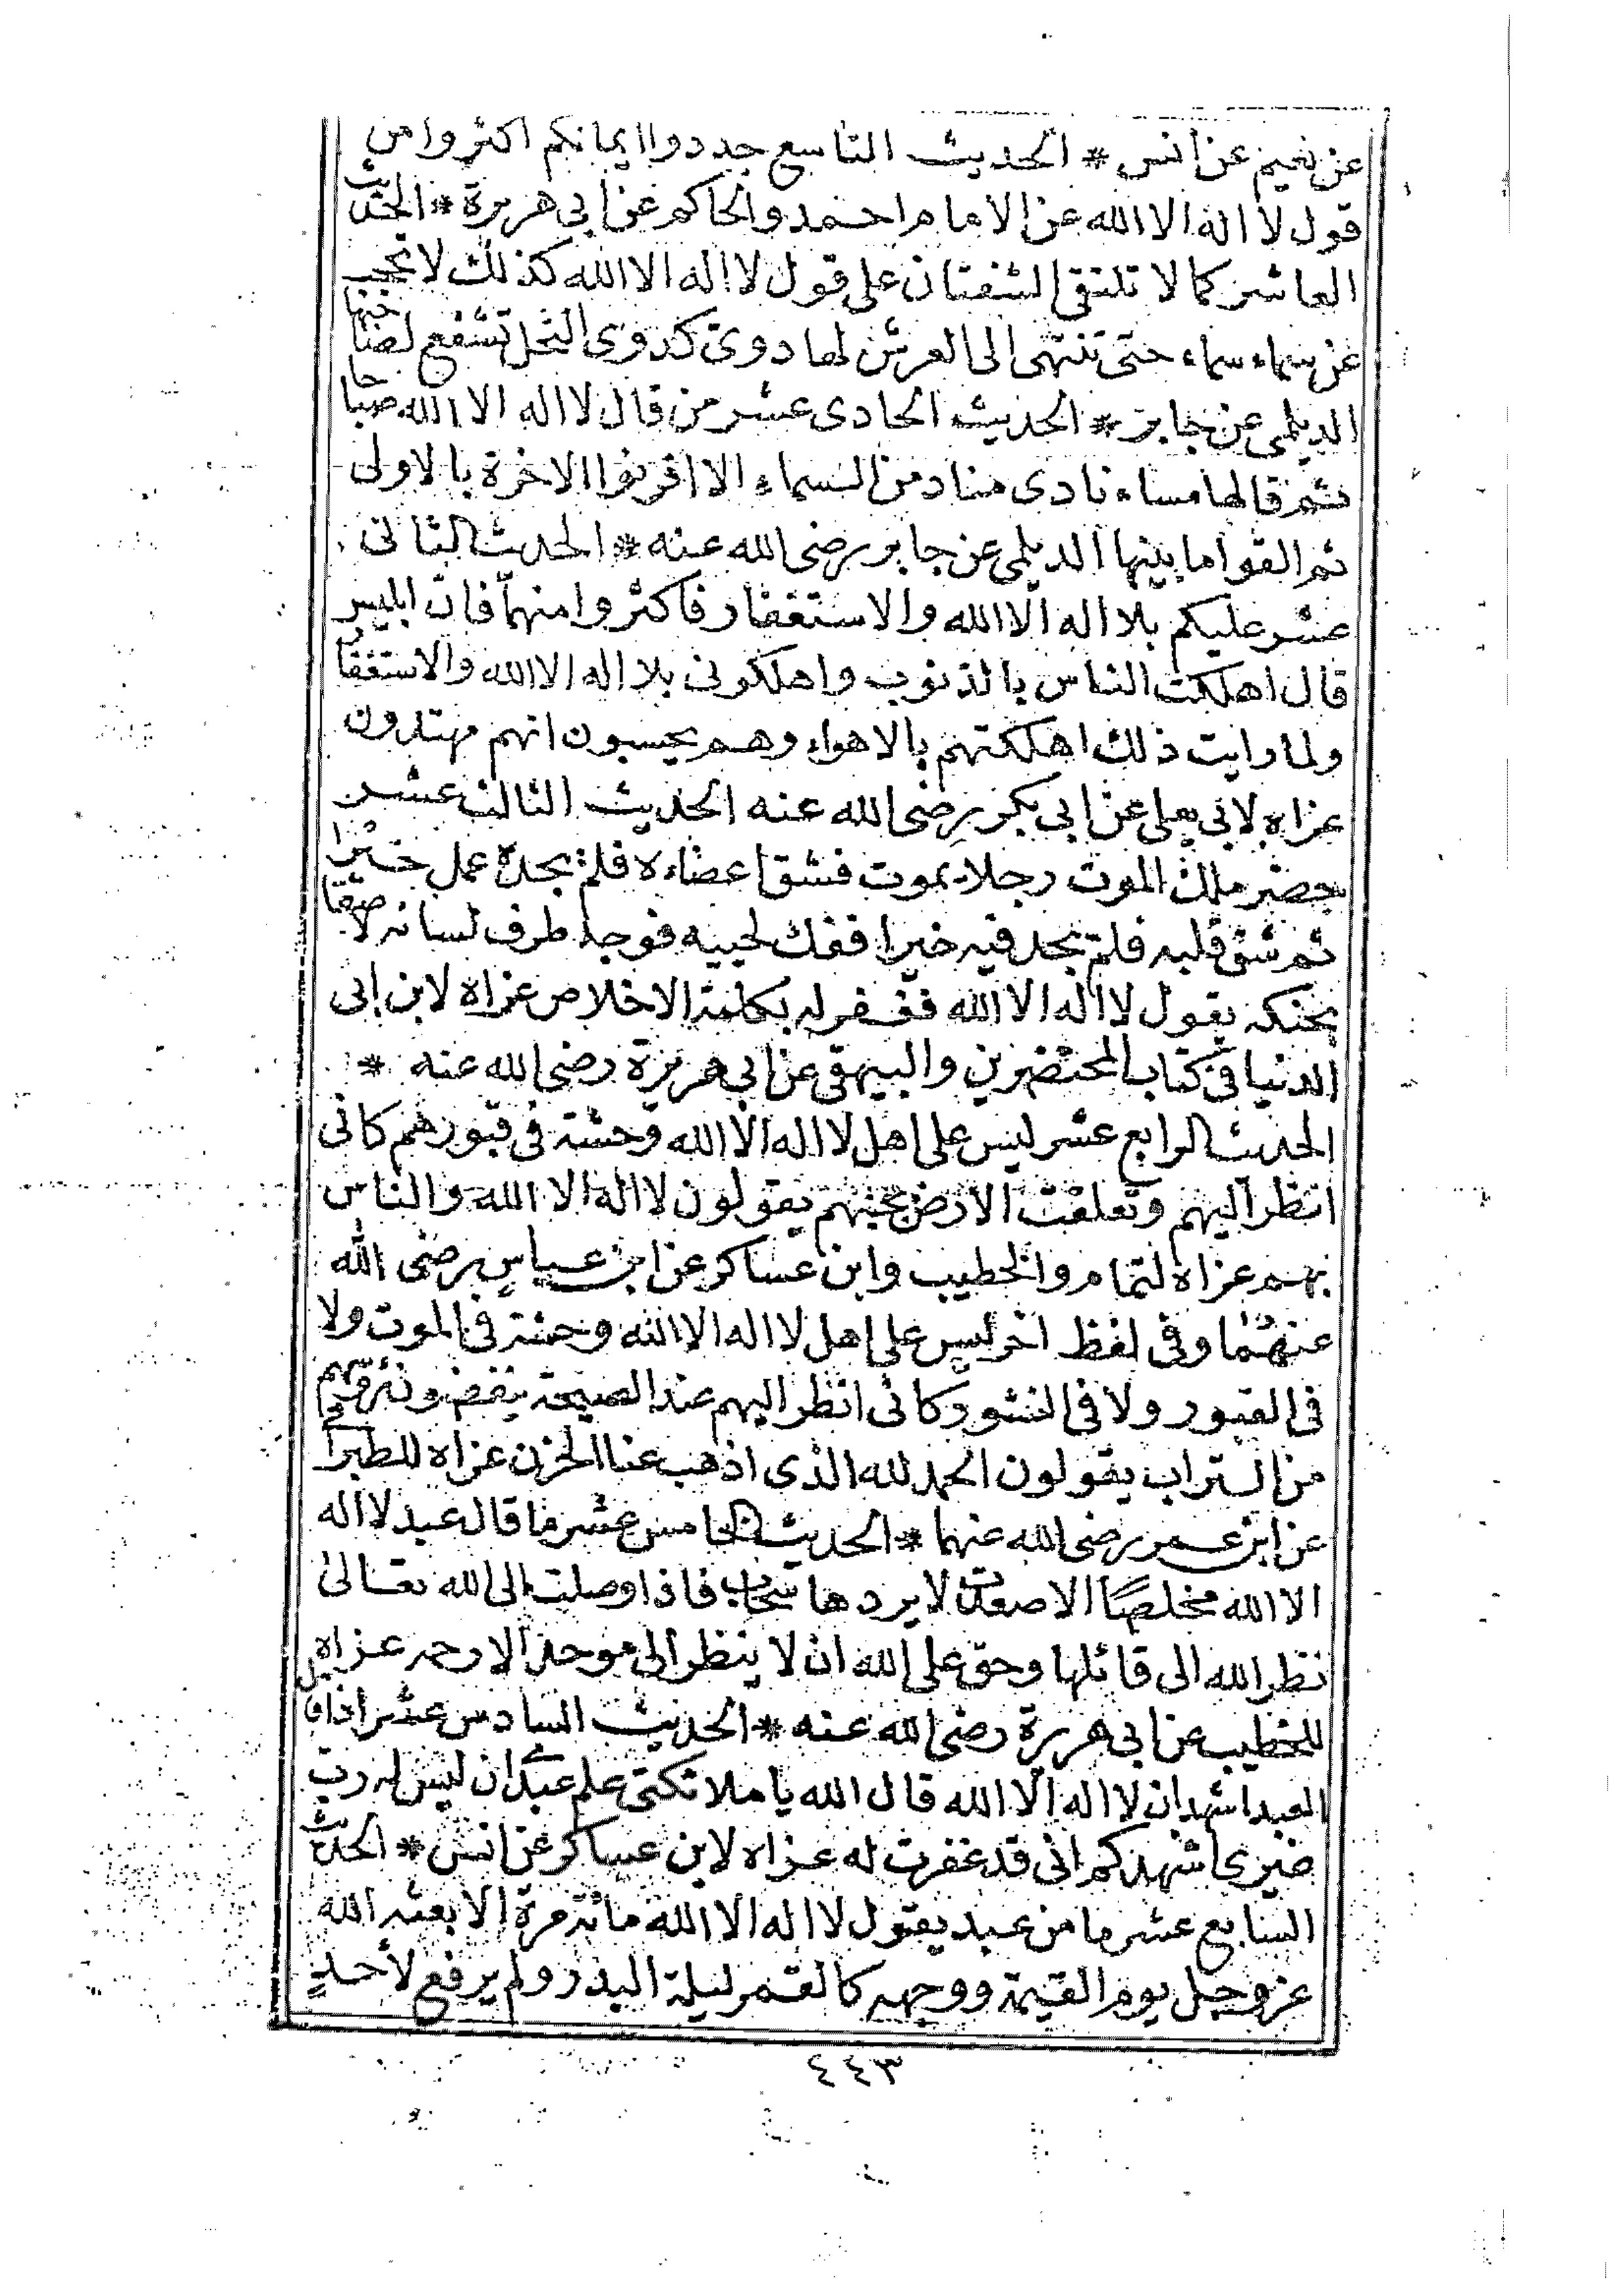 عن نعيم عن انس * الحديث التاسع جددوا ايمانكم اكثروا من
قول لا اله الا الله عن الامام احمد والحاكم عن ابى هريرة * الحديث
العاشر كما لا تلتقى الشفتان على قول لا اله الا الله كذلك لا تحجب
عن سماء سماء حتى تنتهى الى العرش لها دوى كدوى النحل تشفع لصاحبها
الديلمى عن جابر * الحديث الحادى عشر من قال لا اله الا الله صباحا
ثم قالها مساء نادى مناد من السماء الا اقرنوا الاخرة بالاولى
ثم القوا ما بينها الديلمى عن جابر رضى الله عنه * الحديث الثانى
عشر عليكم بلا اله الا الله والاستغفار فاكثروا منهما فان ابليس
قال اهلكت الناس بالذنوب واهلكونى بلا اله الا الله والاستغفا
ولما رايت ذلك اهلكتهم بالاهواء وهم يحسبون انهم مهتدون
عزاه لابى يعلى عن ابى بكر رضى الله عنه الحديث الثالث عشر
حضر ملك الموت رجلا يموت فشق اعضاءه فلم يجده عمل خيرا
ثم شق قلبه فلم يجد فيه خيرا ففك لحييه فوجد طرف لسانه لاصقا
بحنكه يقول لا اله الا الله فغفر له بكلمة الاخلاص عزاه لابن ابى
الدنيا فى كتاب المحتضرين والبيهقى عن ابى هريرة رضى الله عنه *
الحديث الرابع عشر ليس على اهل لا اله الا الله وحشة فى قبورهم كانى
انظر اليهم وتعلقت الارض بجنبهم يقولون لا اله الا الله والناس
بهم عزاه لتمام والخطيب وابن عساكر عن ابن عباس رضى الله
عنهما وفى لفظ اخر ليس على اهل لا اله الا الله وحشة فى الموت ولا
فى القبور ولا فى النشور وكانى انظر اليهم عند الصيحة ينفضون رؤسهم
من التراب يقولون الحمد لله الذى اذهب عنا الحزن عزاه للطبرا
عن ابن عمر رضى الله عنهما * الحديث الخامس عشر ما قال عبد لا اله
الا الله مخلصًا الا صعدت لا يردها حجاب فاذا وصلت الى الله تعالى
نظر الله الى قائلها وحق على الله ان لا ينظر الى موحد الا رحمه عزاه
للخطيب عن ابى هريرة رضى الله عنه * الحديث السادس عشر اذا قال
العبد اشهد ان لا اله الا الله قال الله يا ملائكتى علم عبدى ان ليس له رب
غيرى اشهدكم انى قد غفرت له عزاه لابن عساكر عن انس * الحديث
السابع عشر ما من عبد يقول لا اله الا الله مائة مرة الا بعثه الله
عز وجل يوم القيمة ووجهه كالقمر ليلة البدر ولم يرفع لأحدٍ
٤٤٣